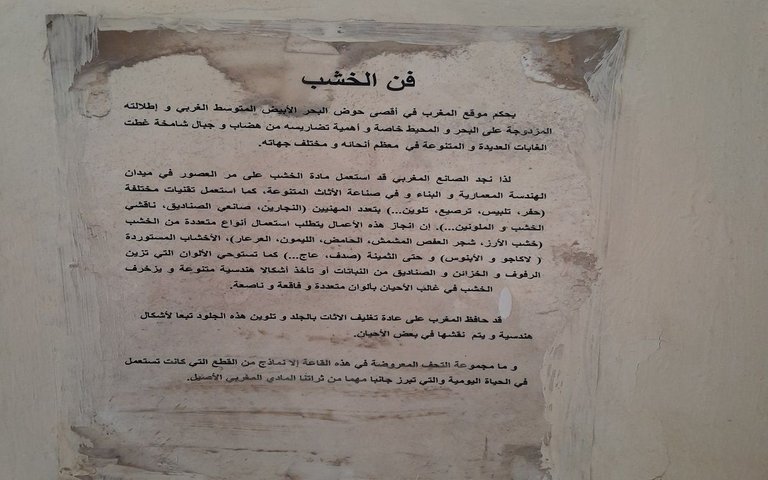 فن الخشب
بحكم موقع المغرب في أقصى حوض البحر الأبيض المتوسط الغربي و إطلالته
المزدوجة على البحر و المحيط خاصة و أهمية تضاريسه من هضاب و جبال شامخة غطت
الغابات العديدة و المتنوعة في معظم أنحائه و مختلف جهاته.
لذا نجد الصانع المغربي قد استعمل مادة الخشب على مر العصور في ميدان
الهندسة المعمارية و البناء و في صناعة الأثاث المتنوعة، كما استعمل تقنيات مختلفة
(حفر، تلبيس، ترصيع، تلوين...) بتعدد المهنيين (النجارين، صانعي الصناديق، ناقشي
الخشب و الملونين...). إن انجاز هذه الأعمال يتطلب استعمال أنواع متعددة من الخشب
(خشب الأرز، شجر العفص المشمش، الحامض، الليمون، العرعار)، الأخشاب المستوردة
( لاكاجو و الأبنوس) و حتى الثمينة (صدف، عاج...) كما تستوحي الألوان التي تزين
الرفوف و الخزائن و الصناديق من النباتات أو تأخذ أشكالا هندسية متنوعة و يزخرف
الخشب في غالب الأحيان بألوان متعددة و فاقعة و ناصعة.
قد حافظ المغرب على عادة تغليف الاثات بالجلد و تلوين هذه الجلود تبعا لأشكال
هندسية و يتم نقشها في بعض الأحيان.
و ما مجموعة التحف المعروضة في هذه القاعة إلا نماذج من القطع التي كانت تستعمل
في الحياة اليومية والتي تبرز جانبا مهما من ثراتنا المادي المغربي الأصيل.